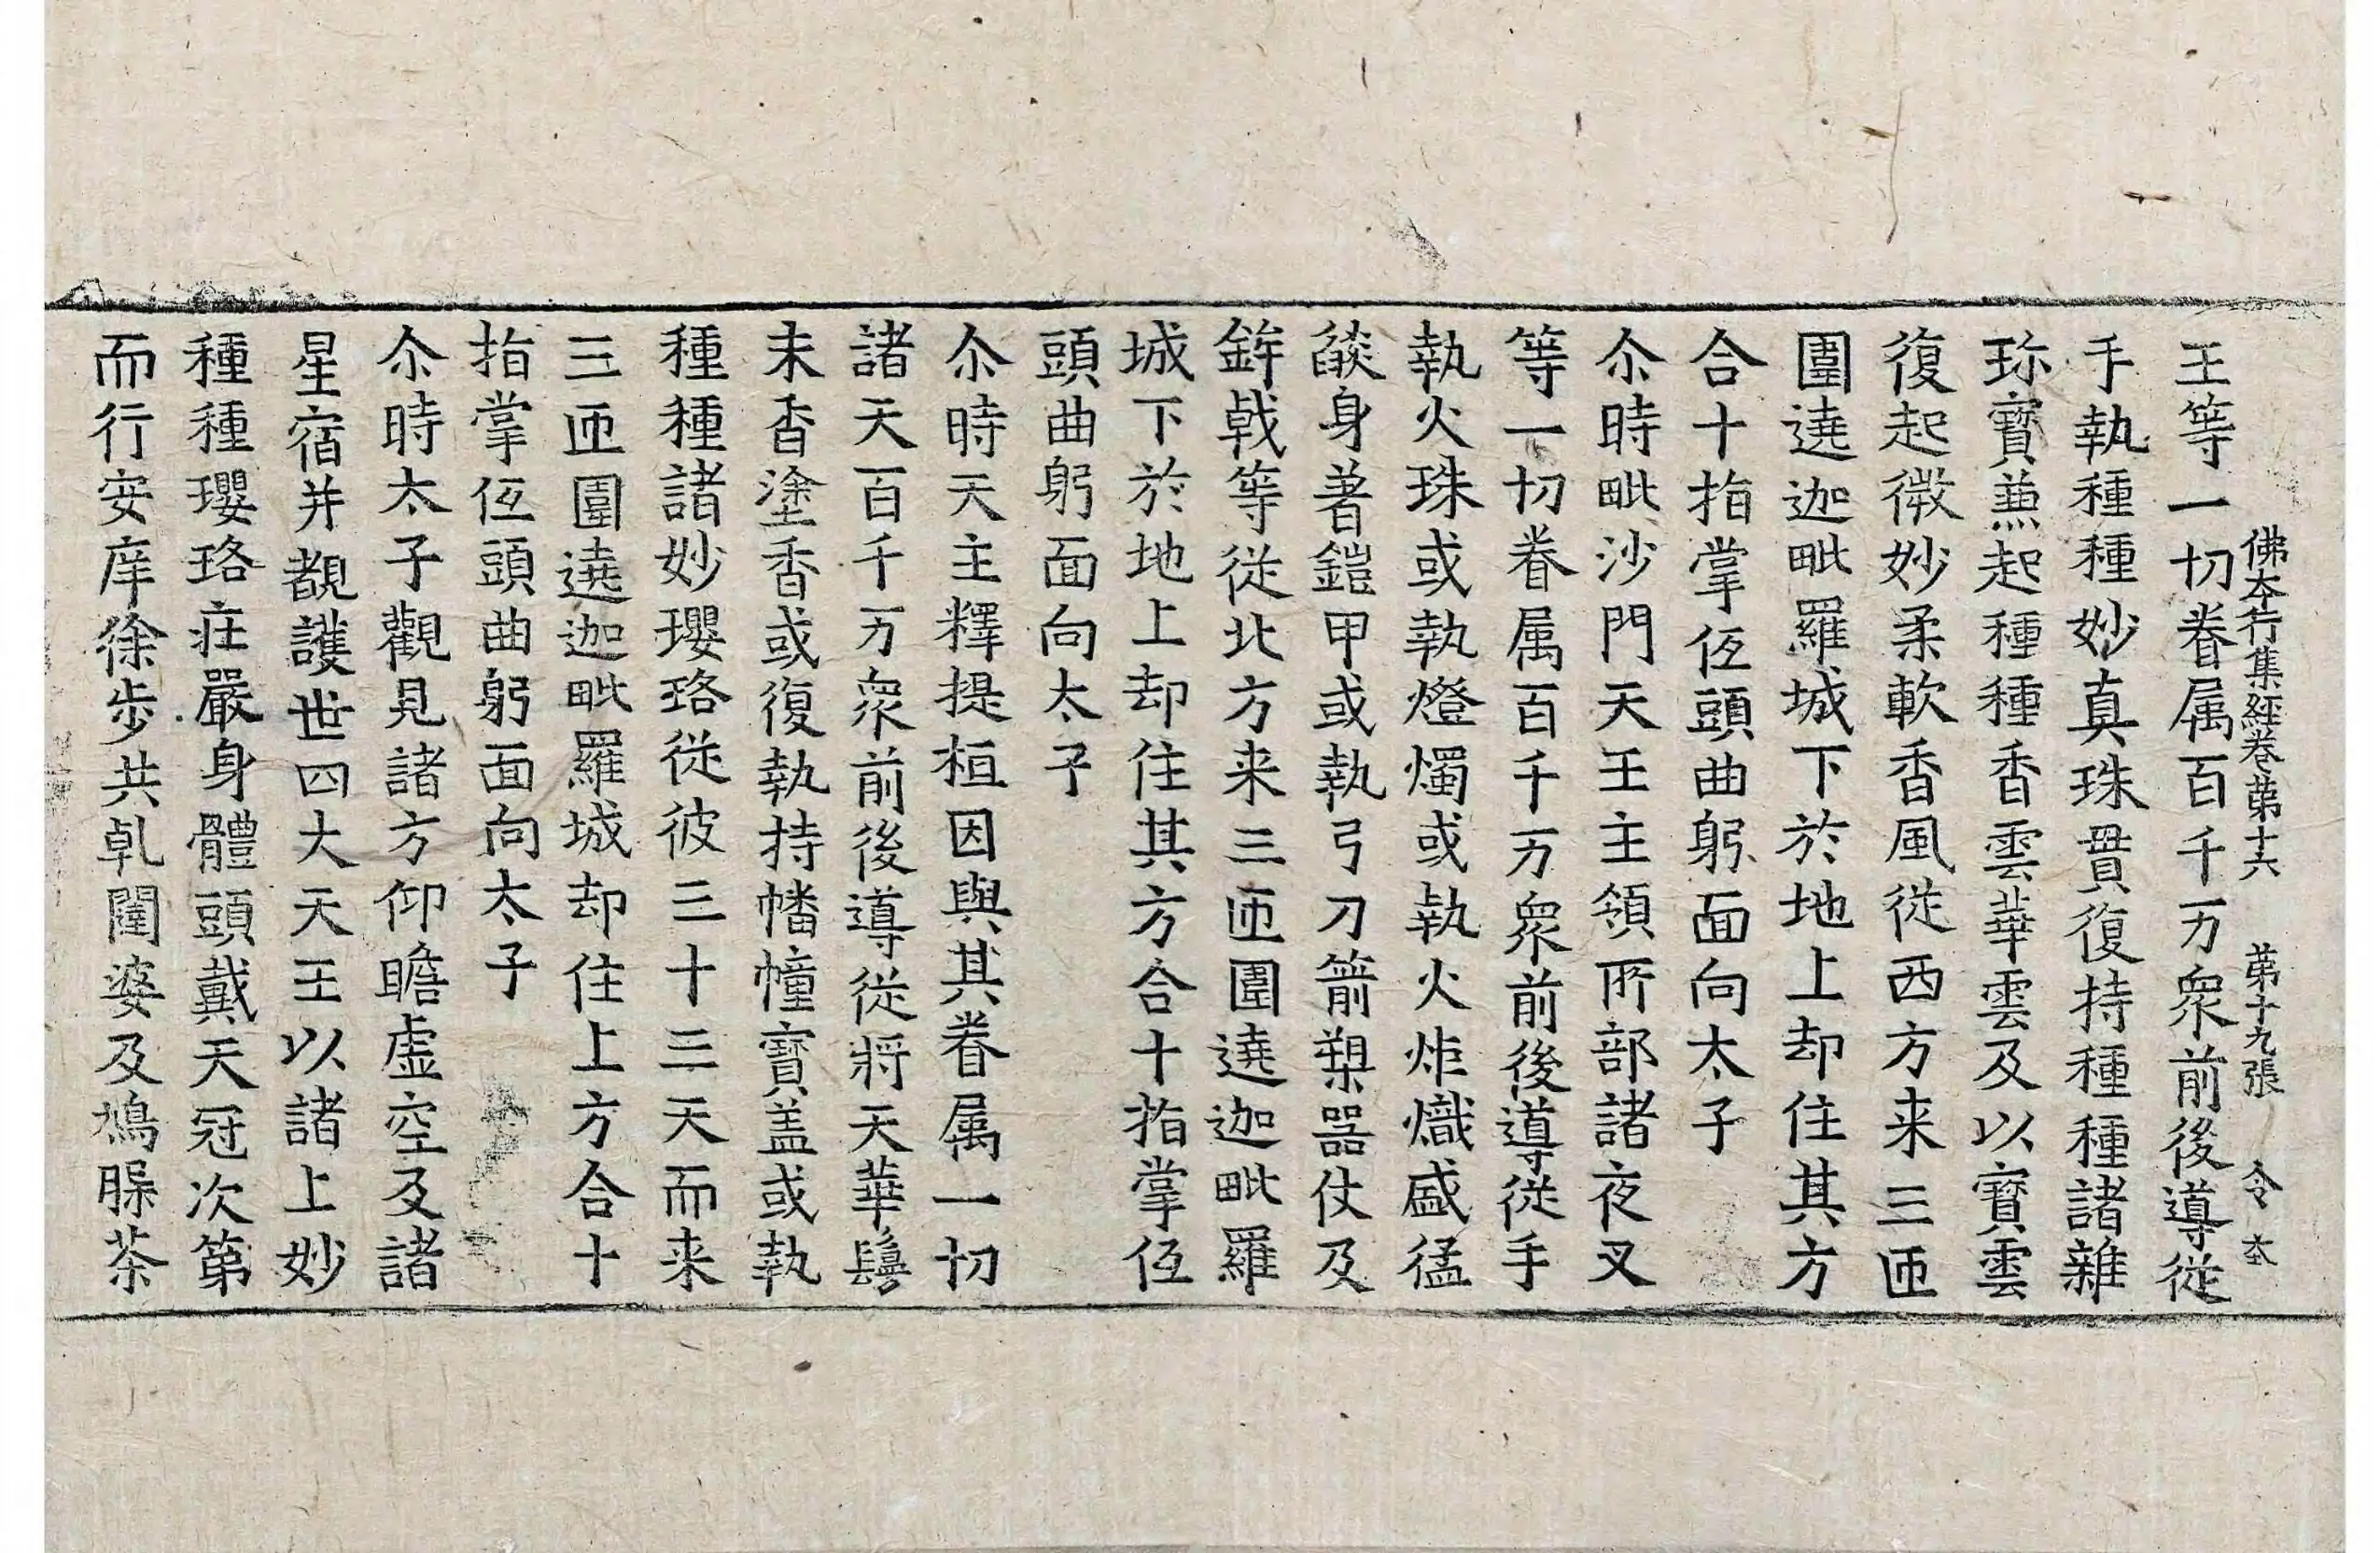 佛夲行集經卷苐十六　苐十九張　令　夲
王等一切眷属百千万衆前後導從
手執種種妙真珠貫復持種種諸雜
珎寶𠔥起種種香雲華雲及以寶雲
復起微妙柔軟香風從西方来三匝
圍遶迦毗羅城下於地上却住其方
合十指掌伍頭曲躬面向太子
尒時毗沙門天王主領所部諸夜叉
等一切眷属百千万衆前後導從手
執火珠或執燈燭或執火炬熾盛猛
燄身著鎧甲或執弓刀箭槊器仗及
鉾戟等從北方来三匝圍遶迦毗羅
城下於地上却住其方合十指掌伍
頭曲躬面向太子
尒時天主釋提桓因與其眷属一切
諸天百千万衆前後導從將天華鬘
末香塗香或復執持幡幢寶盖或執
種種諸妙瓔珞從彼三十三天而来
三匝圍遶迦毗羅城却住上方合十
指掌伍頭曲躬面向太子
尒時太子觀見諸方仰瞻虛空及諸
星宿并覩護世四大天王以諸上妙
種種瓔珞莊嚴身體頭戴天冠次第
而行安庠徐步共乹闥婆及鳩腺茶